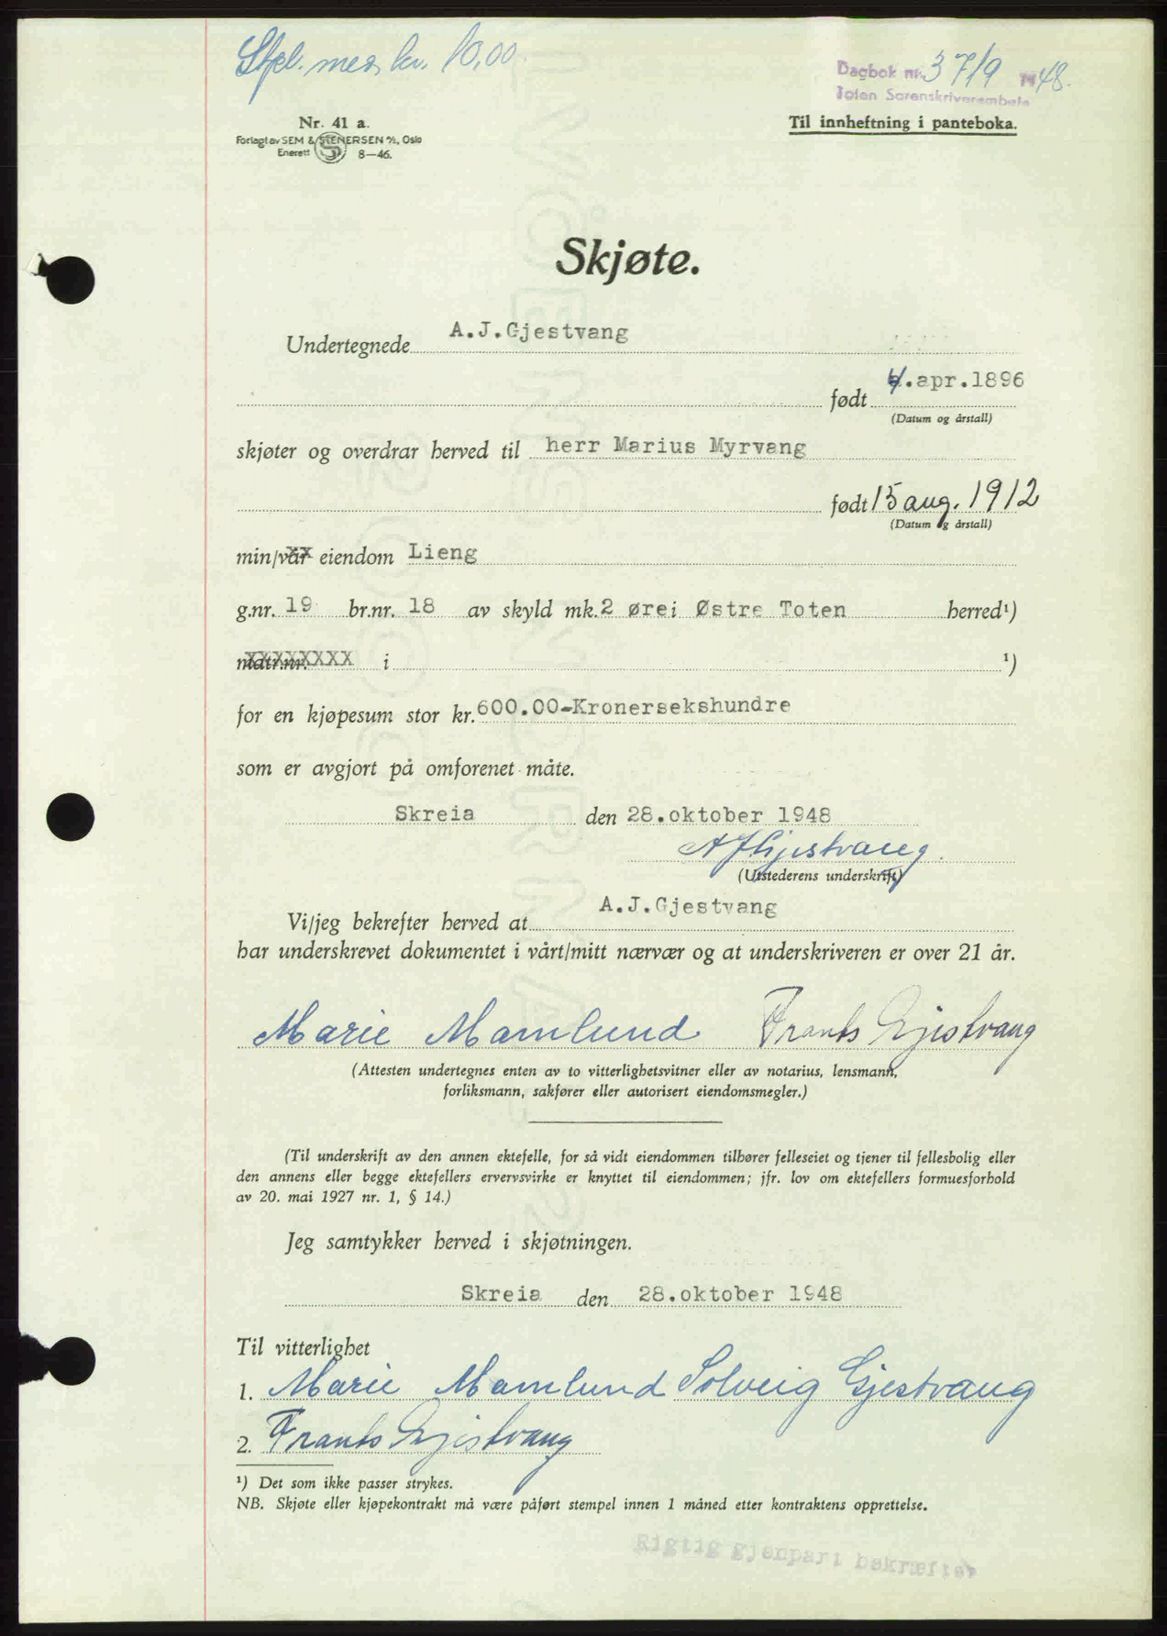 Stpl. med kr. 10,00.
Dagbok nr. 3719 1948.
Toten Sorenskriverembete
Nr. 41 a.
Til innheftning i panteboka.
Forlagt av SEM & STENERSEN A/S, Oslo
Enerett 8—46.
Skjøte.
Undertegnede A.J.Gjestvang
født 4.apr.1896
(Datum og årstall)
skjøter og overdrar herved til herr Marius Myrvang
født 15 aug. 1912
(Datum og årstall)
min/vår eiendom Lieng
g.nr. 19 br.nr. 18 av skyld mk. 2 øre i Østre Toten herred¹)
matr.nr. i ¹)
for en kjøpesum stor kr. 600.00-Kronersekshundre
som er avgjort på omforenet måte.
Skreia den 28.oktober 1948
A J Gjestvang.
(Utstederens underskrift)
Vi/jeg bekrefter herved at A.J.Gjestvang
har underskrevet dokumentet i vårt/mitt nærvær og at underskriveren er over 21 år.
Marie Mamlund Frants Gjestvang
(Attesten undertegnes enten av to vitterlighetsvitner eller av notarius, lensmann,
forliksmann, sakfører eller autorisert eiendomsmegler.)
(Til underskrift av den annen ektefelle, for så vidt eiendommen tilhører felleseiet og tjener til fellesbolig eller
den annens eller begge ektefellers ervervsvirke er knyttet til eiendommen; jfr. lov om ektefellers formuesforhold
av 20. mai 1927 nr. 1, § 14.)
Jeg samtykker herved i skjøtningen.
Skreia den 28.oktober 1948
Til vitterlighet
1. Marie Mamlund Solveig Gjestvang
2. Frants Gjestvang
¹) Det som ikke passer strykes.
NB. Skjøte eller kjøpekontrakt må være påført stempel innen 1 måned etter kontraktens opprettelse.
Rigtig gjenpart bekræftes